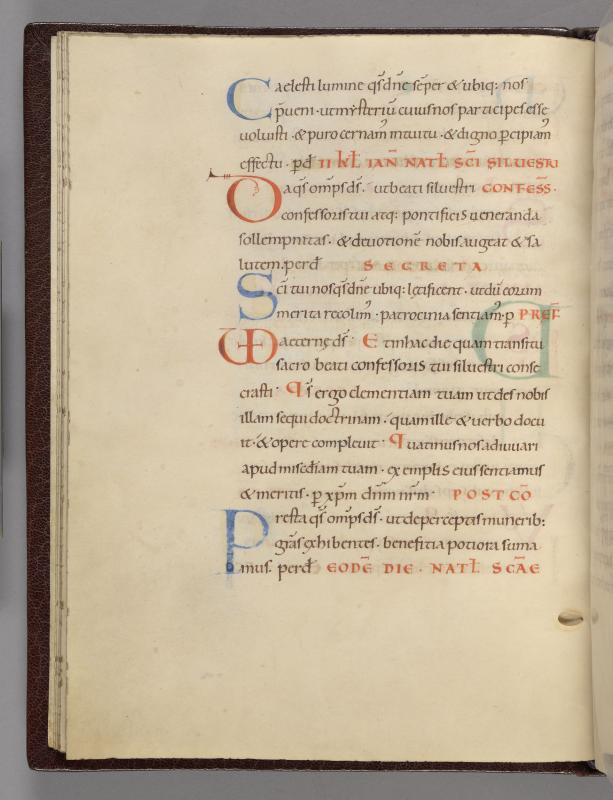 Caelesti lumine qs dne sēper & ubiq; nos
p̄veni · ut mysteriū cuius nos participes esse
voluisti · & puro cernam᾽ intuitu · & digno p̄cipiam᾽
effectu · p̲ d̄ II kƚ IAN̄ NATƚ SC̄I SILUESRI
Da qs omp̄s d̄s · ut beati siluestri CONFESS̄ ·
confessoris tui atq; pontificis ueneranda
sollempnitas · & devotionē nobis augeat & sa
lutem · per d̄ SECRETA
Sc̄i tui nos qs dn̄e ubiq; lętificent · ut dū eorum
merita recolim᾽ · patrocinia sentiam᾽ · p̲ PREF̄
VD aeternę d̄s · Et in hac die quam transitu
sacro beati confessoris tui siluestri conse
crasti · Qs̄ ergo clementiam tuam ut des nobis
illam sequi doctrinam · quam ille & verbo docu
it · & opere complevit · Quatinus nos adiuuari
apud misc̄diam tuam · exemplis eius sentiamus
& meritis · p̲ xp̄m dn̄m nr̄m · POST CŌ
Presta qs omp̄s d̄s · ut de perceptis munerib;
grās exhibentes · benefitia potiora suma
mus · per d̄ EODĒ DIE · NATƚ SCĀE